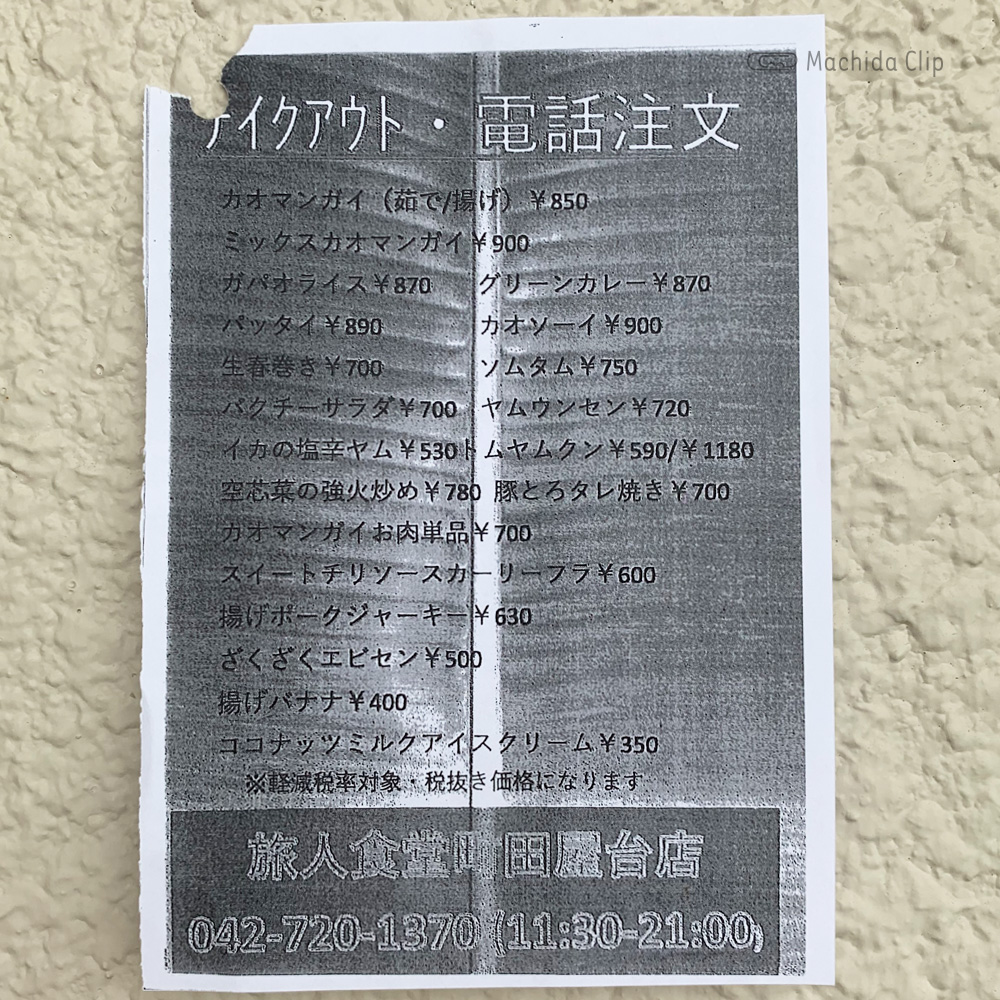 Machida Clip
テイクアウト・電話注文
カオマンガイ（茹で/揚げ）￥850
ミックスカオマンガイ￥900
ガパオライス￥870 グリーンカレー￥870
パッタイ￥890 カオソーイ￥900
生春巻き￥700 ソムタム￥750
パクチーサラダ￥700 ヤムウンセン￥720
イカの塩辛ヤム￥530トムヤムクン￥590/￥1180
空芯菜の強火炒め￥780 豚とろタレ焼き￥700
カオマンガイお肉単品￥700
スイートチリソースカーリーフラ￥600
揚げポークジャーキー￥630
ざくざくエビセン￥500
揚げバナナ￥400
ココナッツミルクアイスクリーム￥350
※軽減税率対象・税抜き価格になります
旅人食堂町田屋台店
042-720-1370 (11:30-21:00)